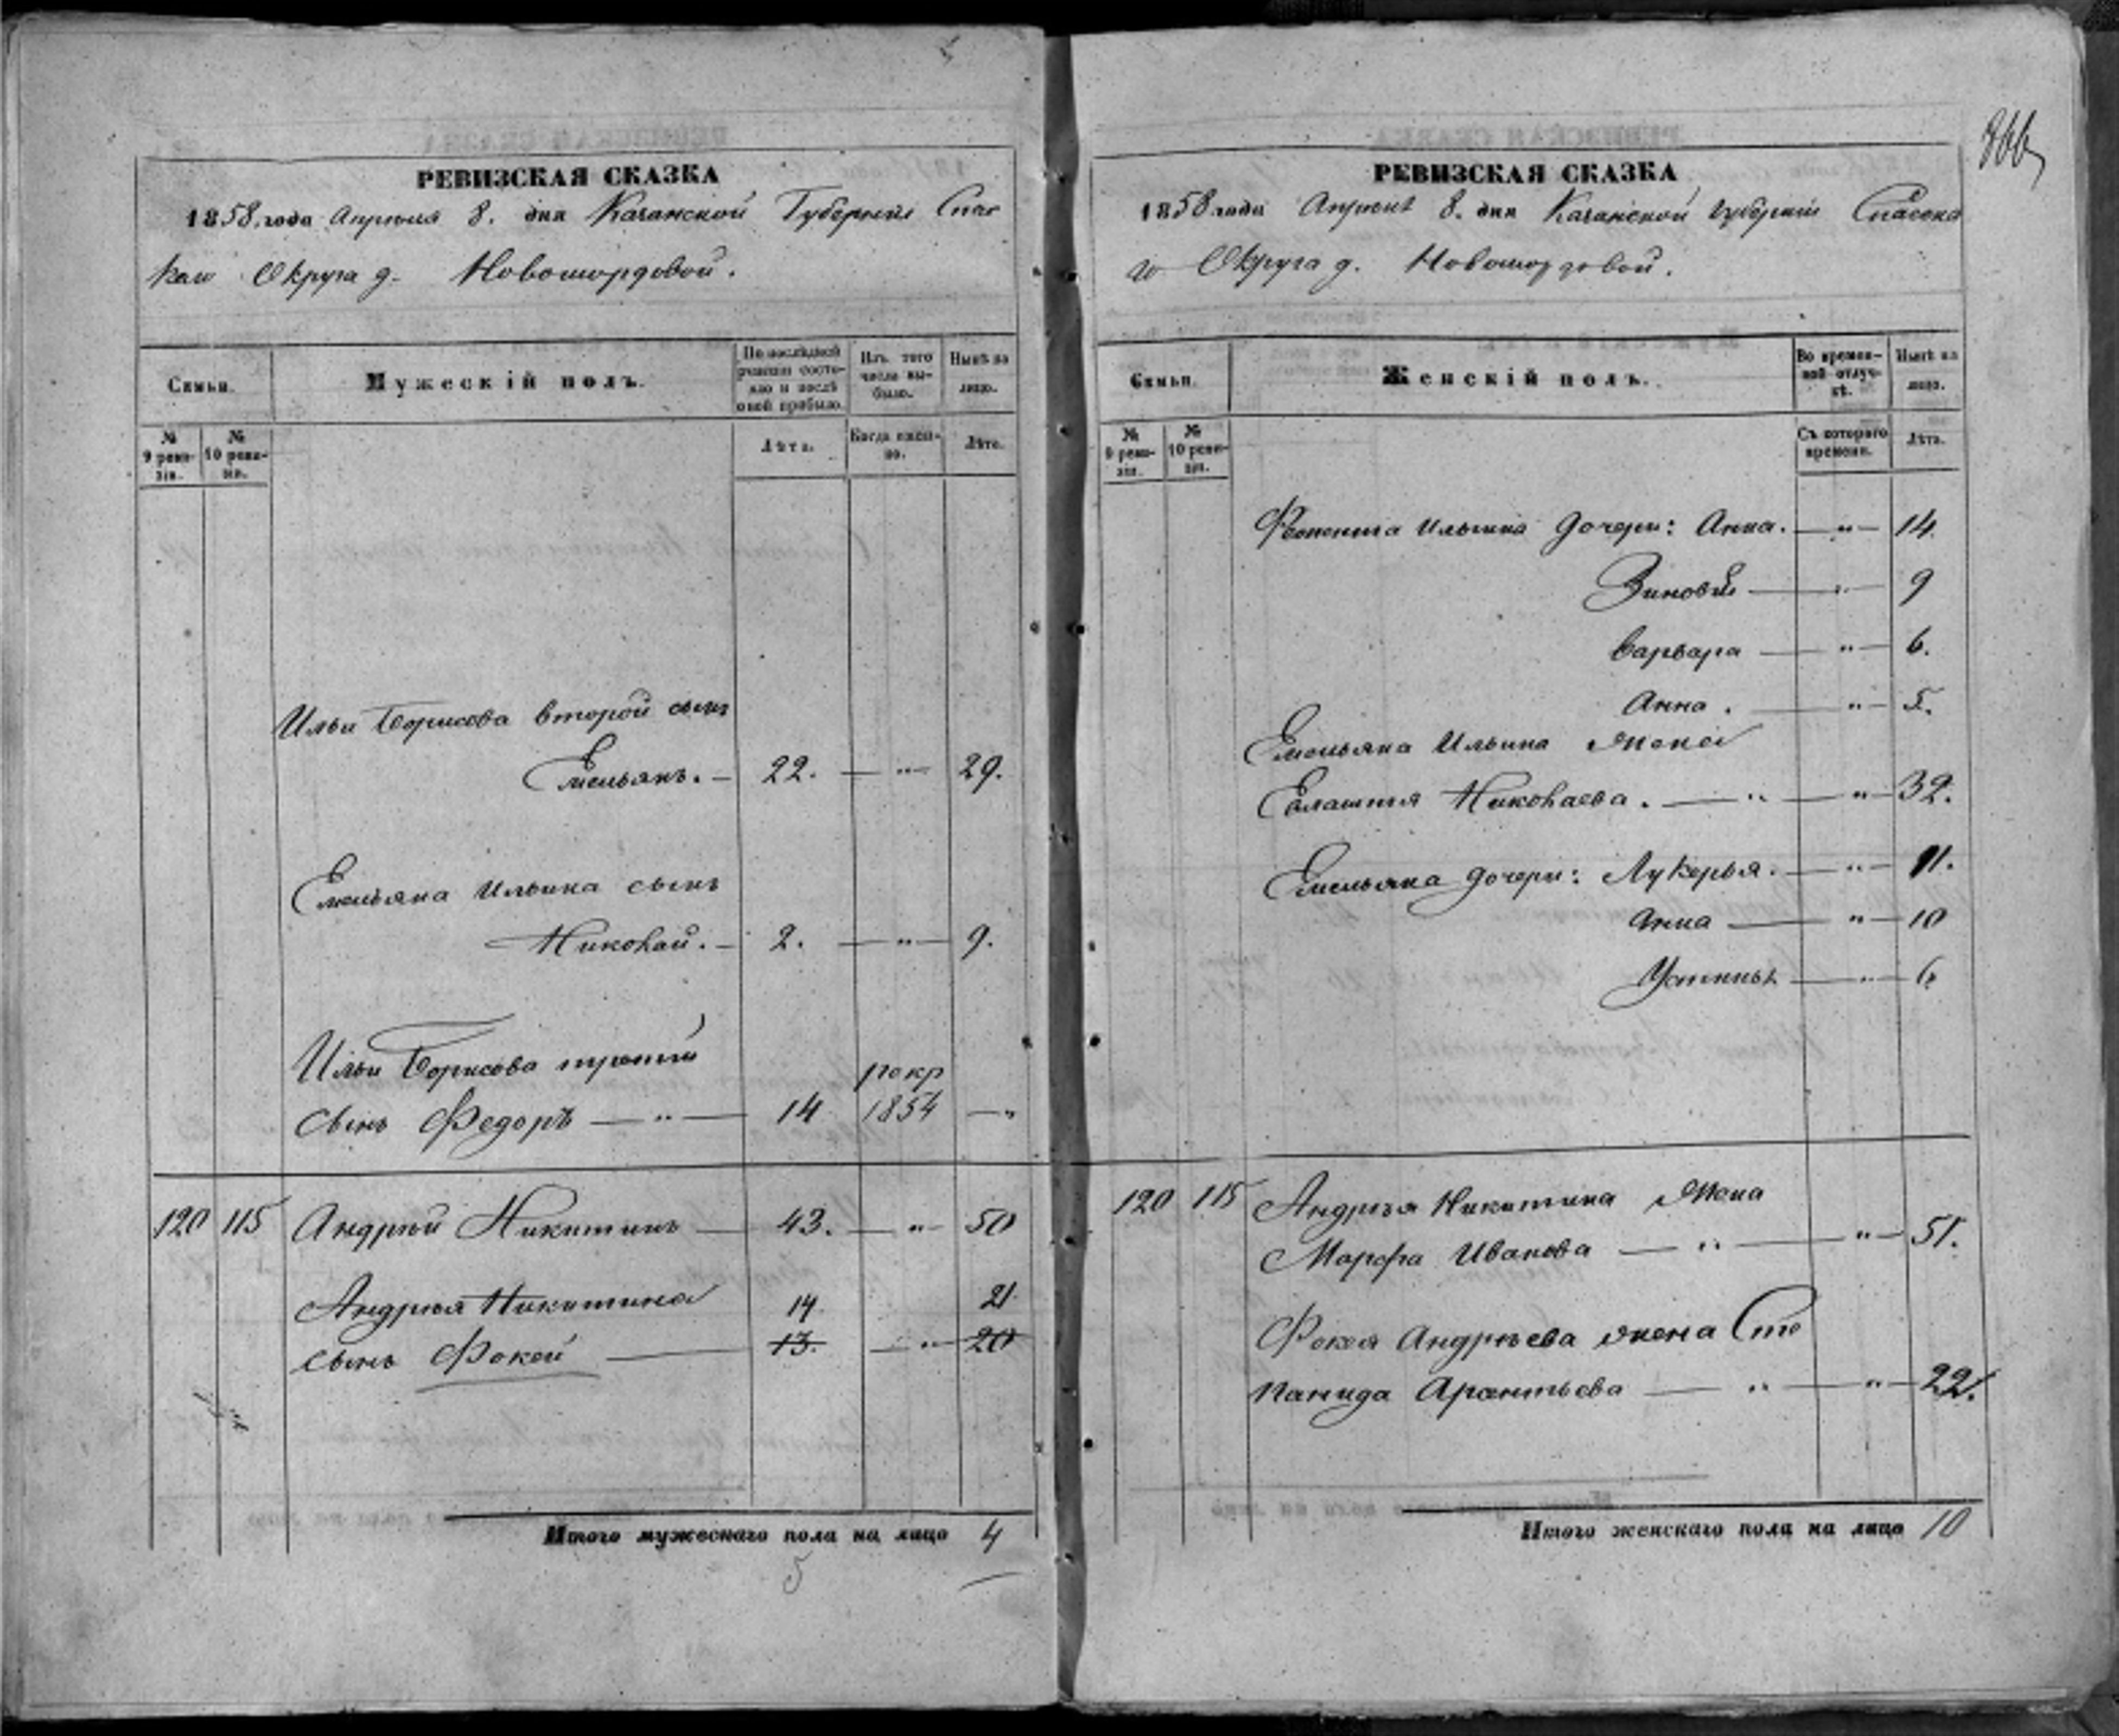 РЕВИЗСКАЯ СКАЗКА
1858 года Апрѣля 8. дня Казанской Губерніи Спас
каго Округа д. Новомордовой.
Семьи.
Мужескій полъ.
По послѣдней ревизіи состояло и послѣ оной прибыло.
Изъ того числа выбыло.
Нынѣ на лицо.
№ 9 ревизіи.
№ 10 ревизіи.
Лѣта.
Когда именно.
Лѣта.
Ильи Борисова второй сынъ
Емельянъ. — 22. — " — 29.
Емельяна Ильина сынъ
Николай. — 2. — " — 9.
Ильи Борисова третій
сынъ Федоръ — " — 14 рекр 1854 — "
120 115 Андрѣй Никитинъ — 43. — " — 50
Андрѣя Никитина 14 21
сынъ Фокей — 13. — " — 20
Итого мужескаго пола на лицо 4
5
366
РЕВИЗСКАЯ СКАЗКА
1858 года Апрѣля 8. дня Казанской Губерніи Спаска
го Округа д. Новомордовой.
Семьи.
Женскій полъ.
Во временной отлучкѣ.
Нынѣ на лицо.
№ 9 ревизіи.
№ 10 ревизіи.
Съ котораго времени.
Лѣта.
Ильина дочери: Анна. — " — 14.
Зиновья — " — 9
Варвара — " — 6.
Анна. — " — 5.
Емельяна Ильина жена
Николаева. — " — " — 32.
Емельяна дочери: Лукерья. — " — 11.
Анна — " — 10
Устинья — " — 6
120 115 Андрѣя Никитина жена
Марфа Иванова — " — " — 51.
Фокея Андрѣева жена Сте
панида — " — " — 22.
Итого женскаго пола на лицо 10